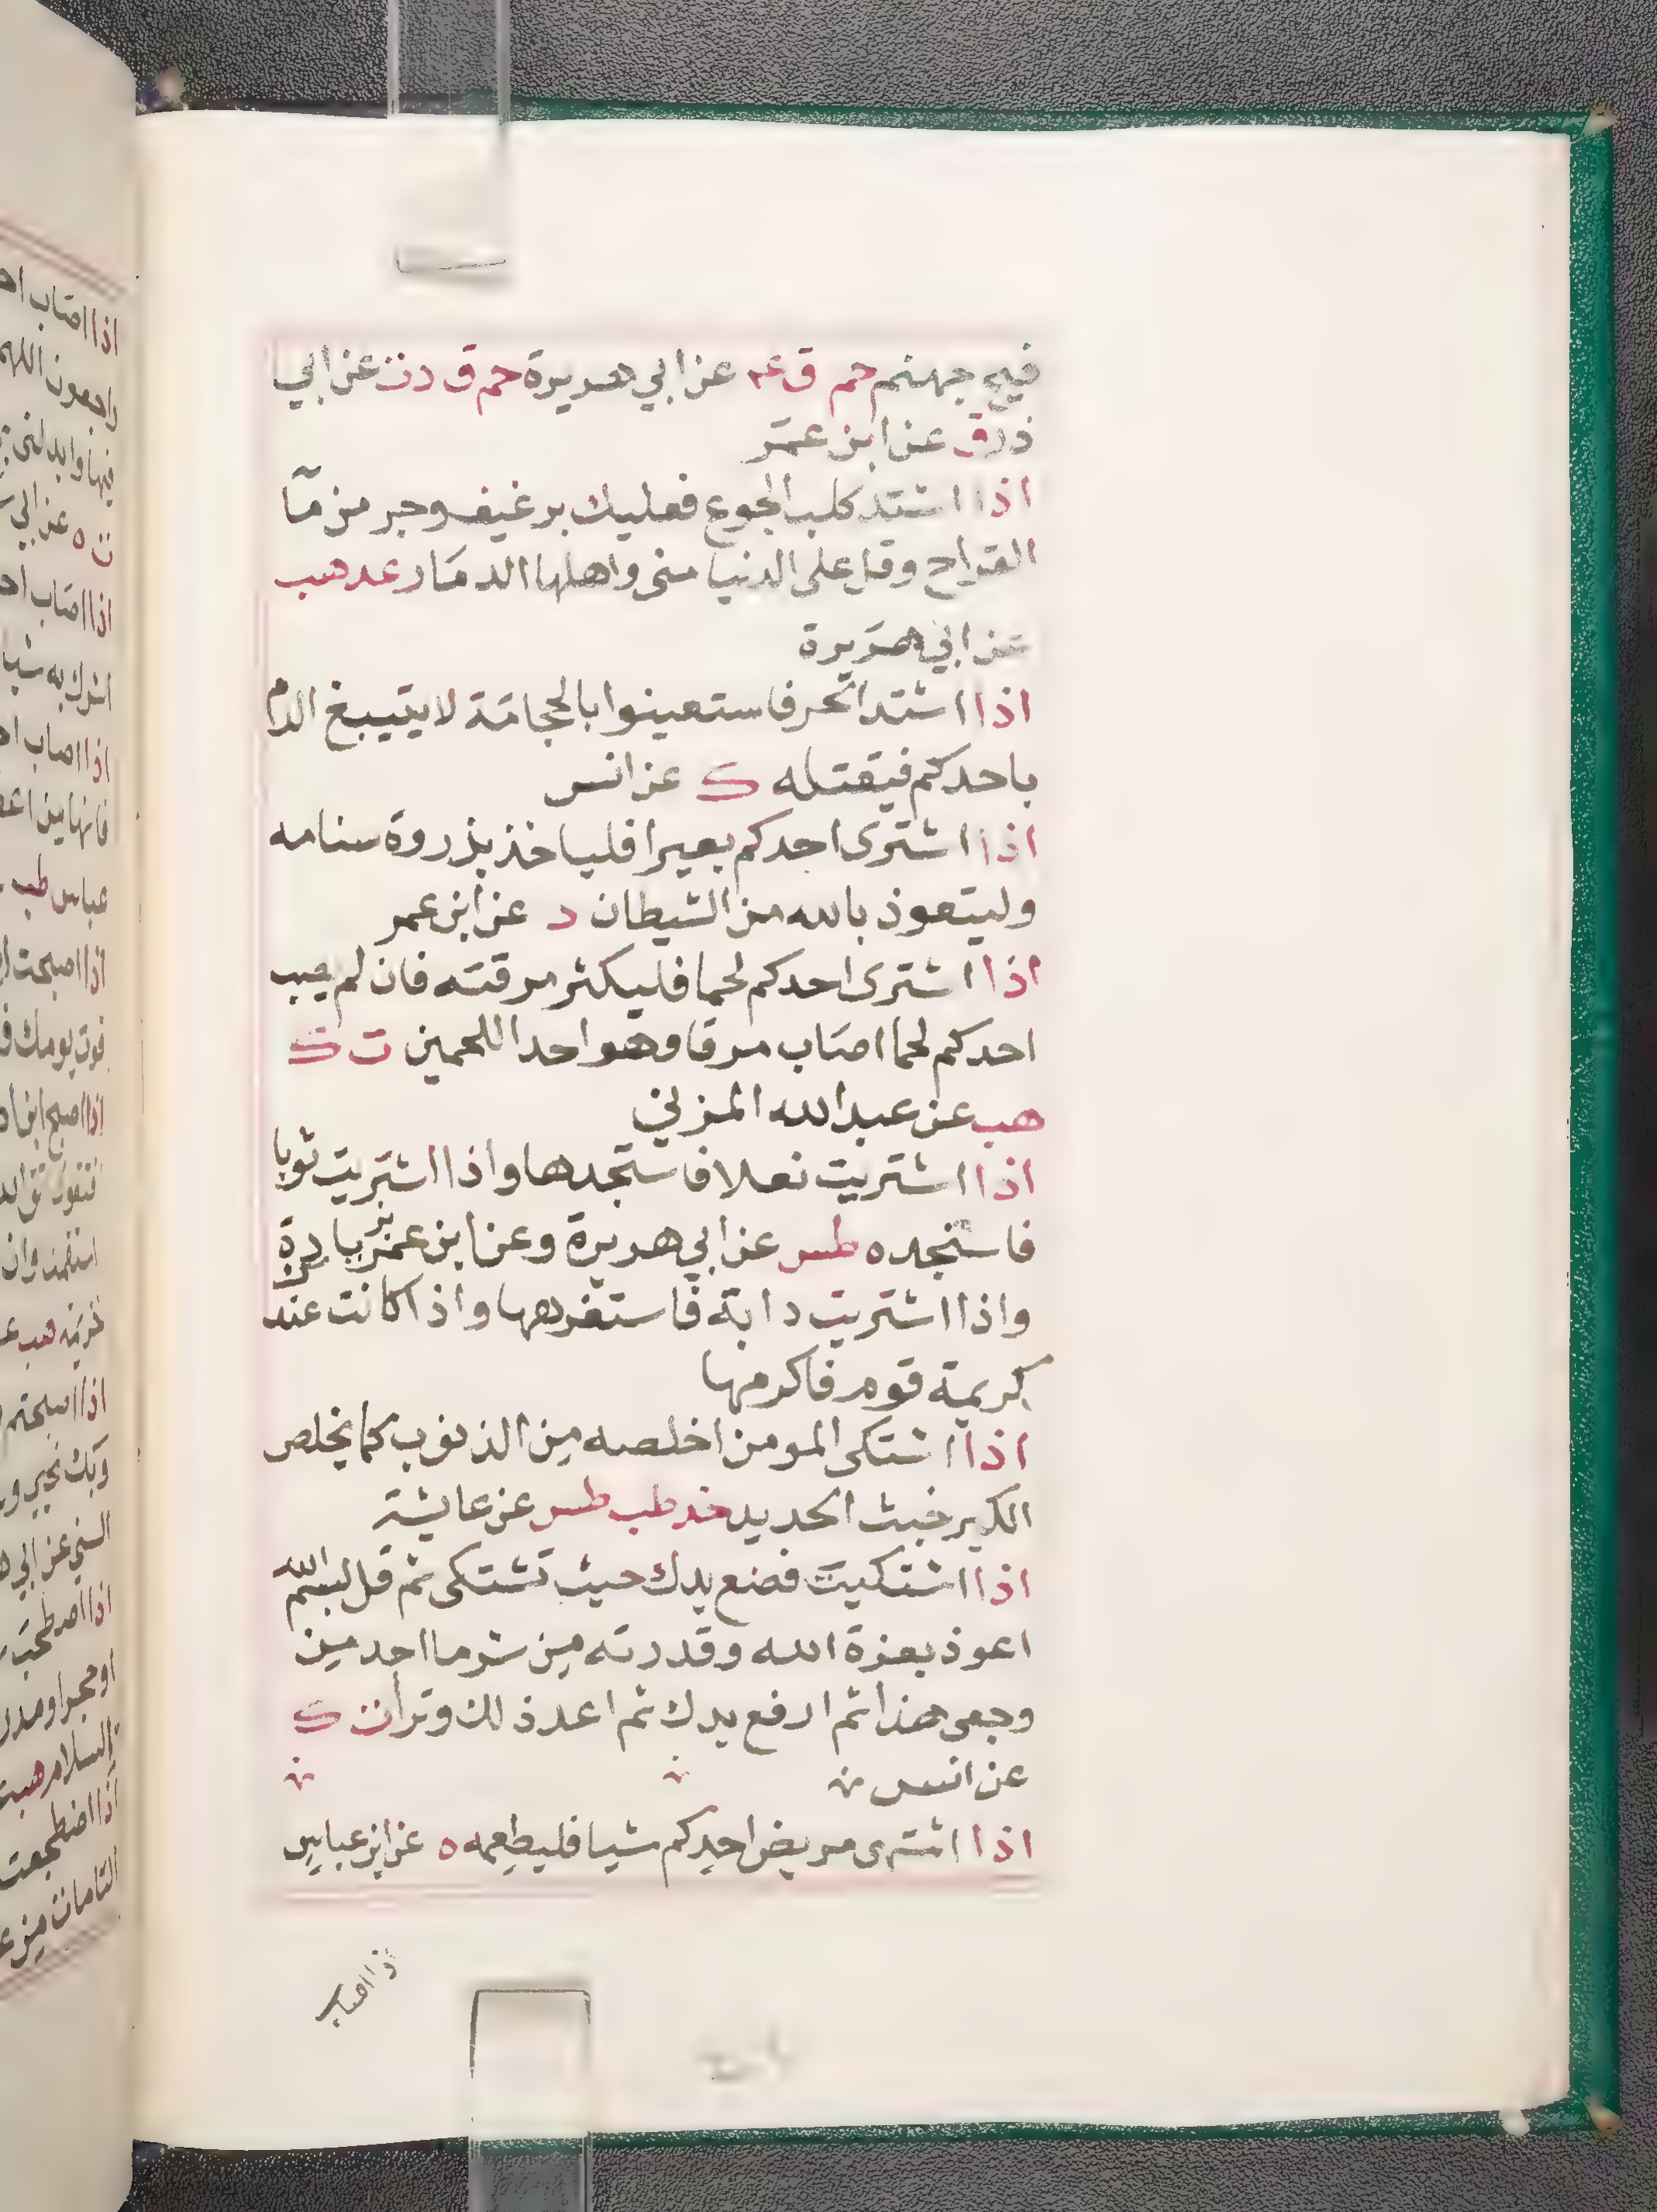 فيح جهنم حم ق عه عن ابي هريرة حم ق د ت عن ابي
ذر ق عن ابن عمر
اذا اشتد كلب الجوع فعليك برغيف وجر من مآ
القراح وقل على الدنيا منى واهلها الدمار عد هب
عن ابي هريرة
اذا اشتد الحر فاستعينوا بالحجامة لا يتبيغ الدم
باحدكم فيقتله ك عن انس
اذا اشترى احدكم بعيرا فلياخذ بذروة سنامه
وليتعوذ بالله من الشيطان د عن ابن عمر
اذا اشترى احدكم لحما فليكثر مرقته فان لم يصب
احدكم لحما اصاب مرقا وهو احد اللحمين ت ك
هب عن عبد الله المزني
اذا اشتريت نعلا فاستجدها واذا اشتريت ثوبا
فاستجده طس عن ابي هريرة وعن ابن عمر بزيادة
واذا اشتريت دابة فاستفرهها واذا كانت عندك
كريمة قوم فاكرمها
اذا اشتكى المومن اخلصه من الذنوب كما يخلص
الكير خبث الحديد خد طب طس عن عايشة
اذا اشتكيت فضع يدك حيث تشتكى ثم قل بسم الله
اعوذ بعزة الله وقدرته من شر ما اجد من
وجعى هذا ثم ارفع يدك ثم اعد ذلك وترا ت ك
عن انس
اذا اشتهى مريض احدكم شيا فليطعمه ه عن ابن عباس
اذا اصاب